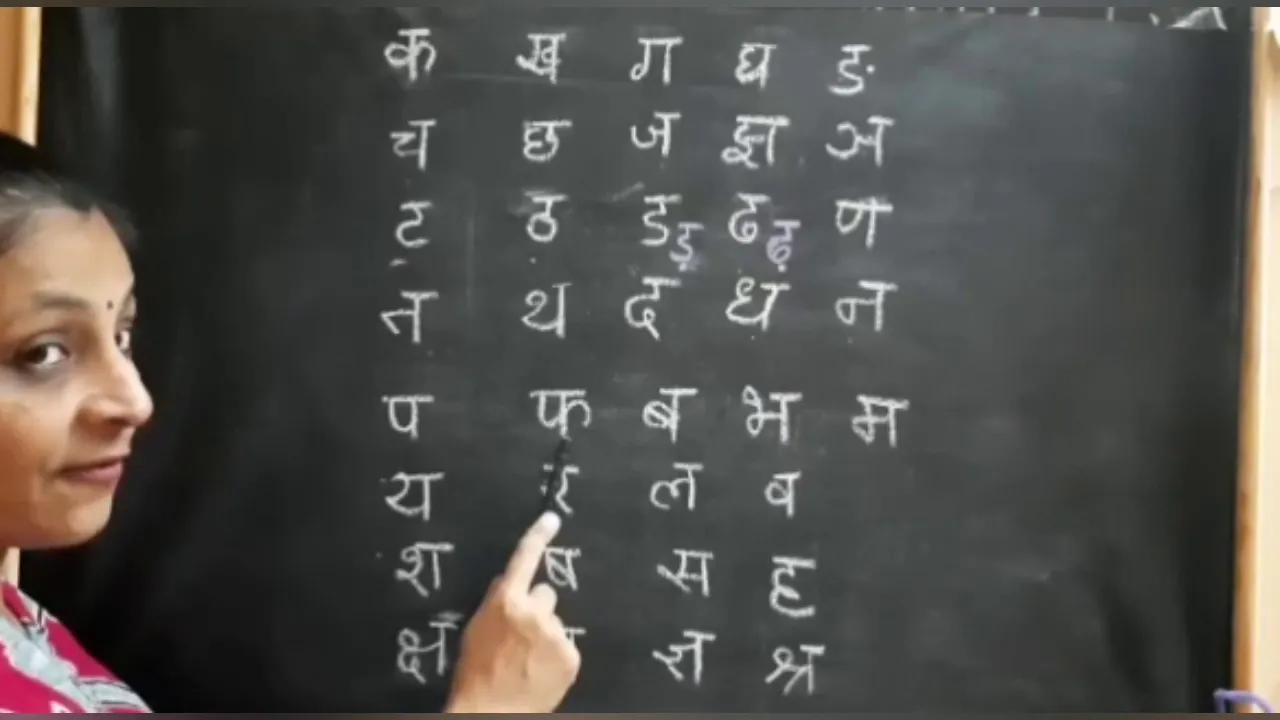 क ख ग घ ङ
च छ ज झ ञ
ट ठ ड ड़ ढ ढ़ ण
त थ द ध न
प फ ब भ म
य र ल व
श ष स ह
क्ष ज्ञ श्र